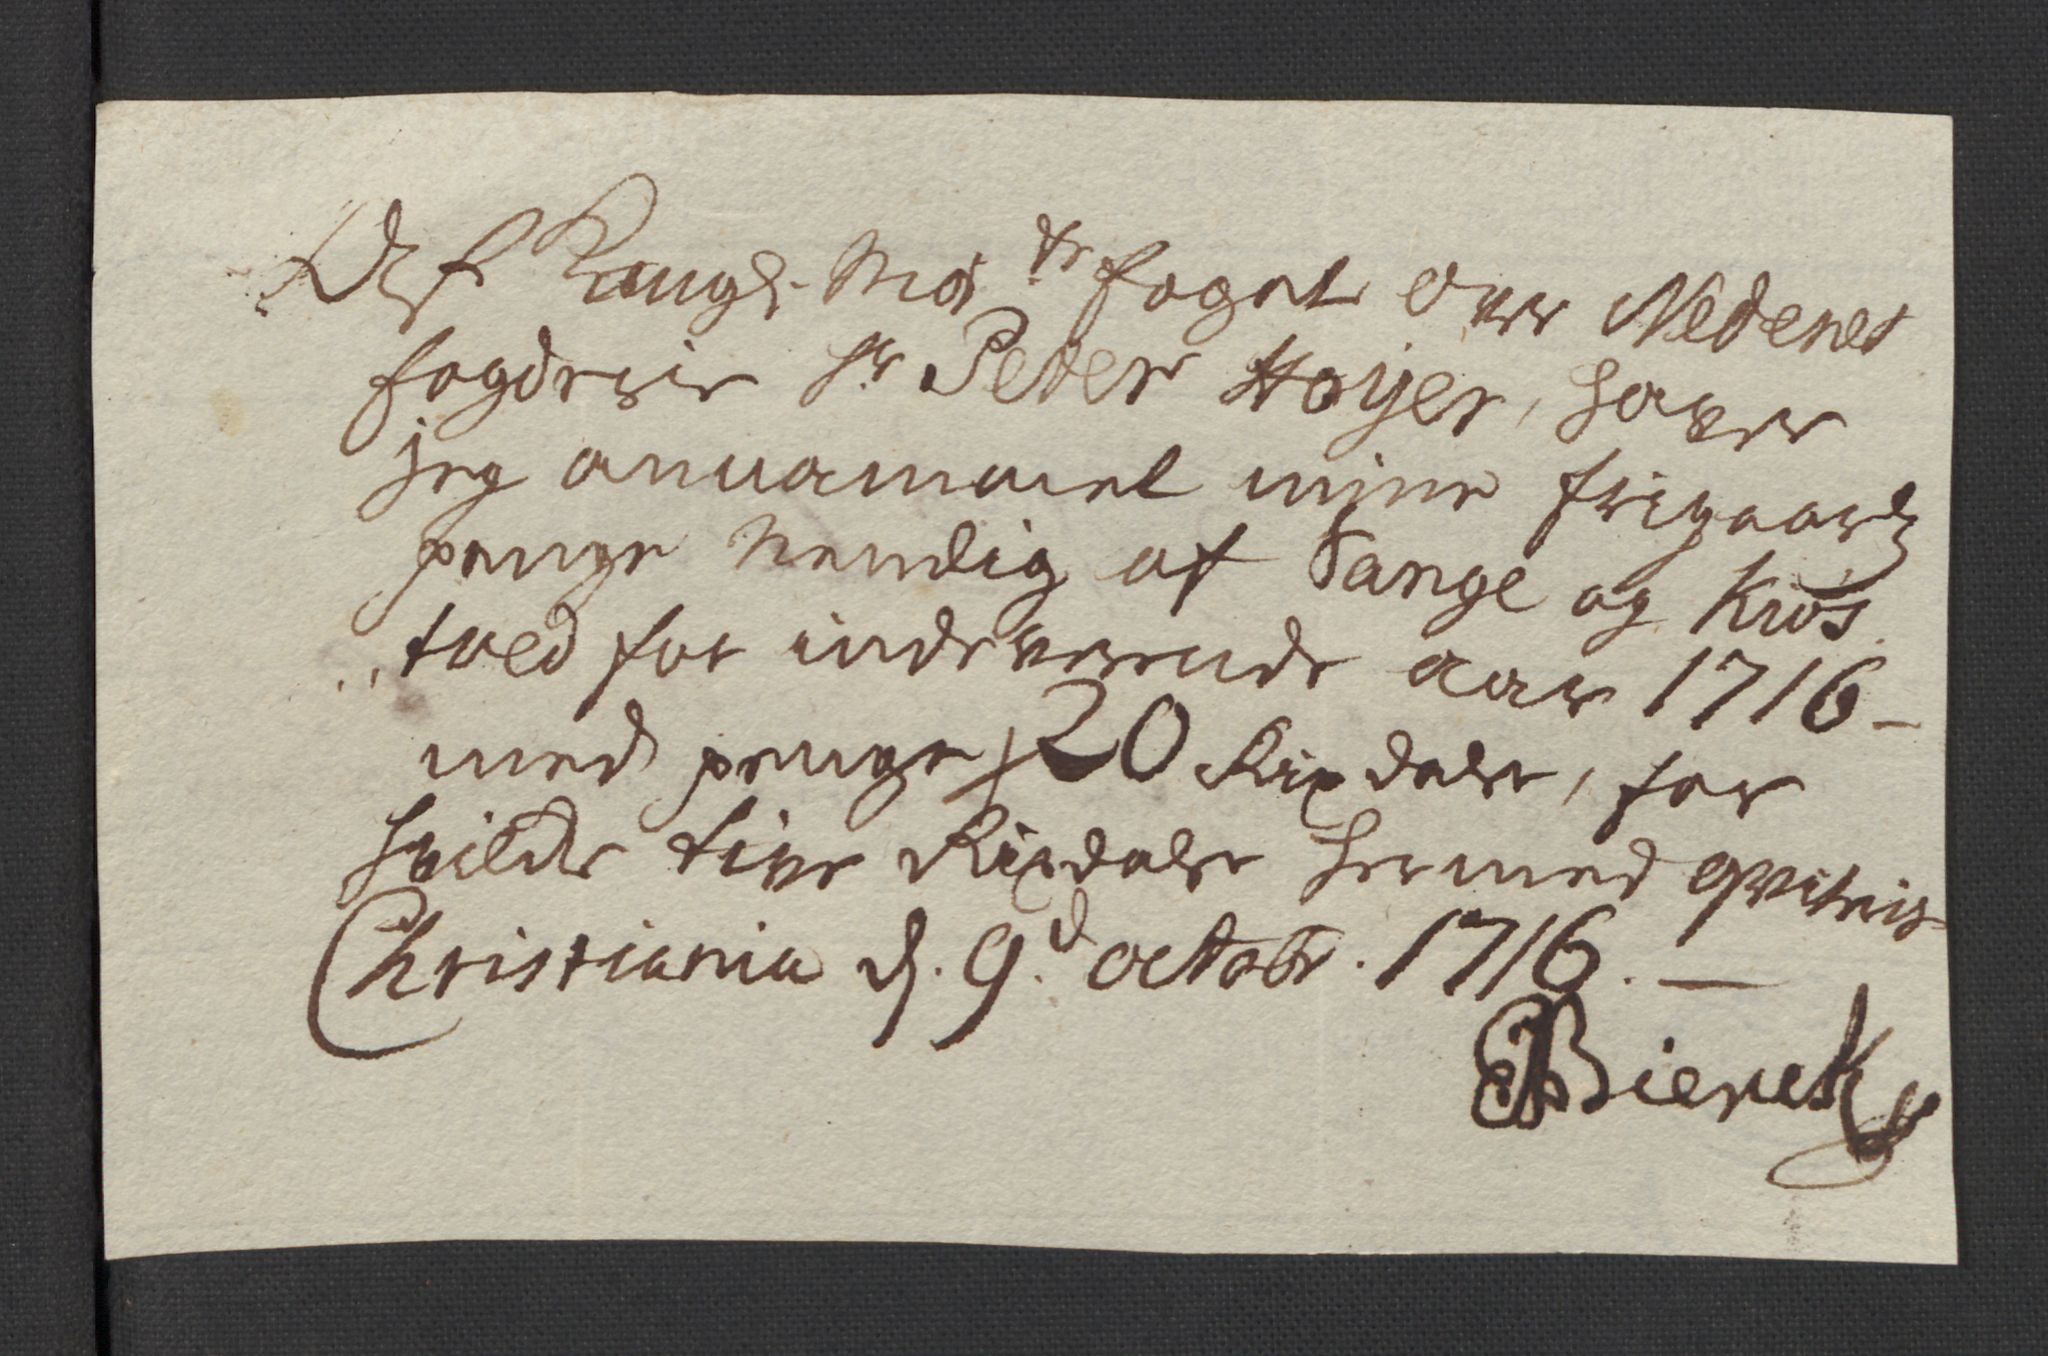 Af Kongl. May.ts fogat over Nedenes
fogderie Hr Peder Høyer, haver
jeg annammet mine frigaards
penge Nemlig af Tange og Krøs
tved for indeværende aar 1716 –
med penge 20 Rixdaler, for
hvilche tive Rixdaler hermed qviteris
Christiania d. 9.d octobr. 1716. —
Bienek